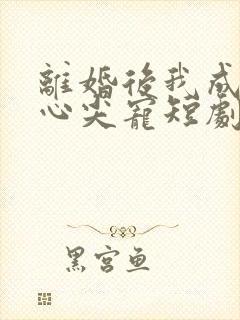 離婚後我成
心尖寵短劇
黑宮魚